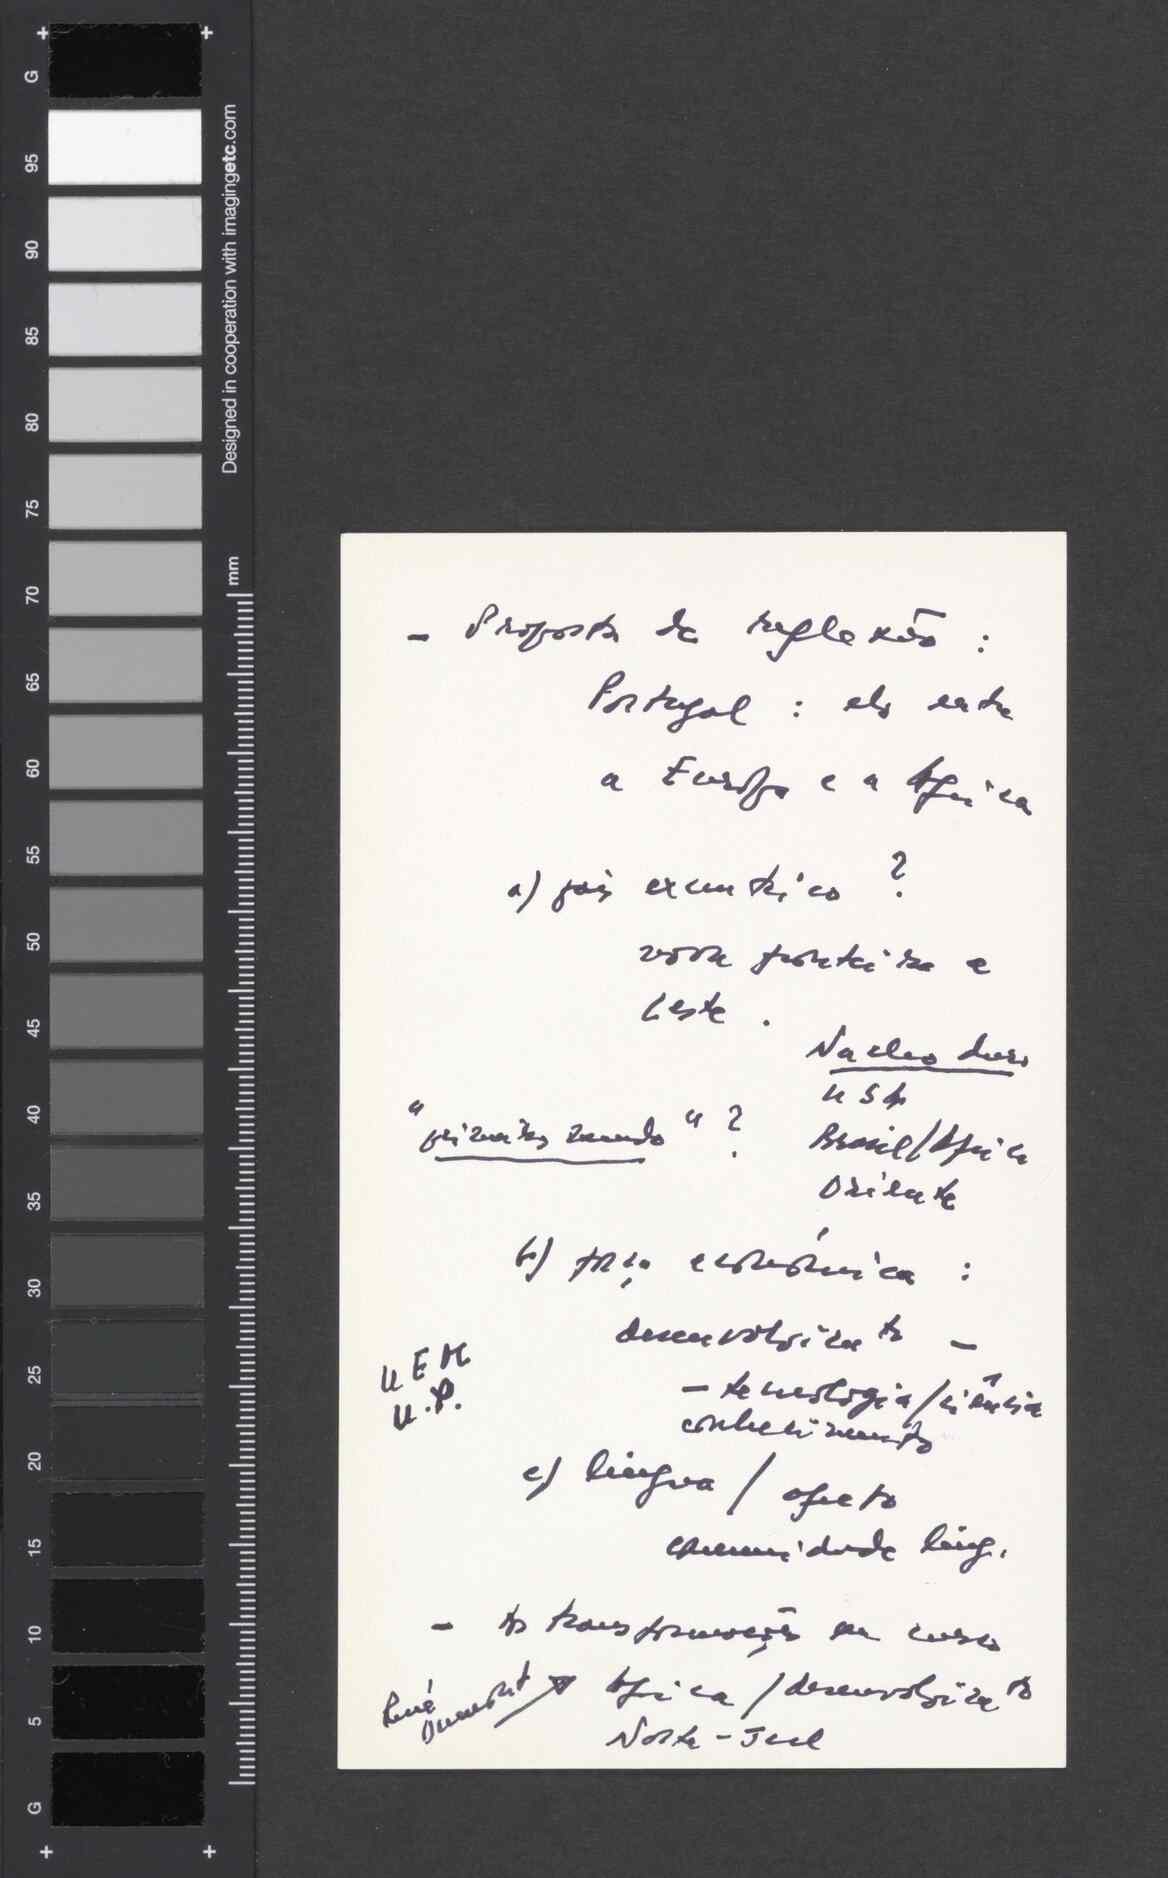 G
95
90
85
80
75
70
65
60
55
50
45
40
35
30
25
20
15
10
5
G
Designed in cooperation with imagingetc.com
mm
- Proposta de reflexão :
Portugal : elo entre
a Europa e a Africa
a) país excentrico ?
nova fronteira a
Leste .
Nucleo duro
USA
"primeiro mundo" ?
Brasil/Africa
Oriente
b) força económica :
desenvolvim.to -
UEM
U.P.
- tecnologia/ciência
conhecimento
c) lingua / afecto
comunidade ling.
- As transformações em curso
René Dumont
Africa / desenvolvim.to
Norte-Sul